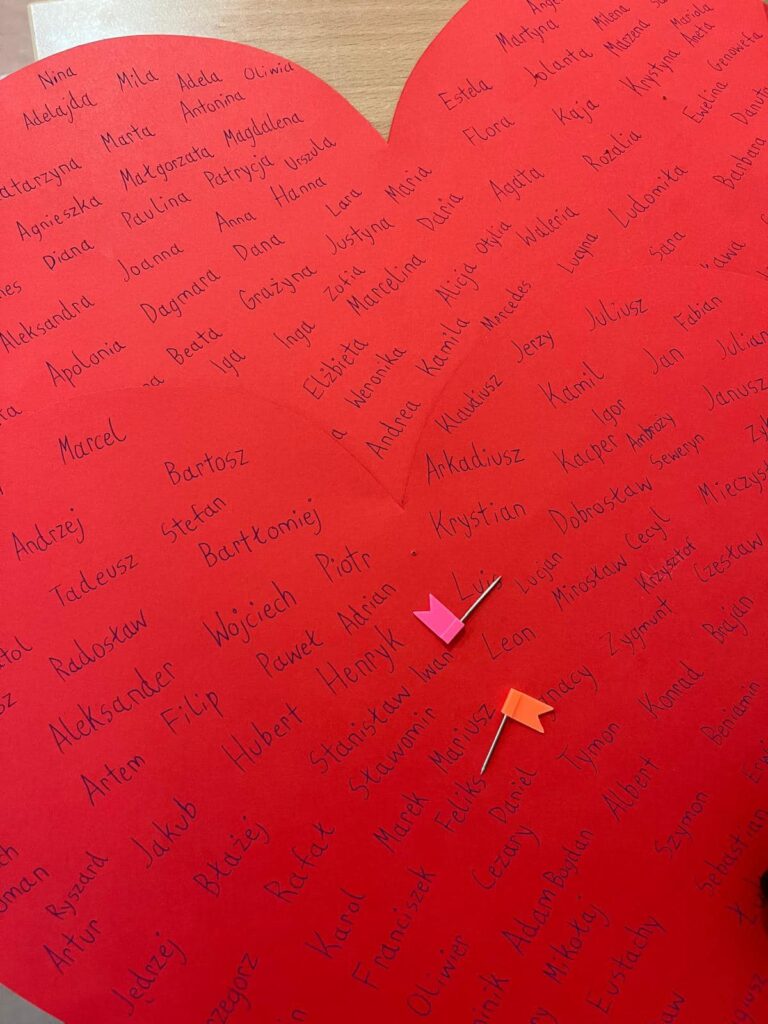 Nina
Mila
Adela
Oliwia
Adelajda
Marta
Antonina
Agnieszka
Małgorzata
Magdalena
Diana
Paulina
Patrycja
Urszula
Aleksandra
Joanna
Anna
Hanna
Apolonia
Dagmara
Dana
Lara
Maria
Beata
Grażyna
Justyna
Iga
Inga
Zofia
Marcelina
Daria
Agata
Elżbieta
Weronika
Kamila
Alicja
Otylia
Waleria
Andrea
Mercedes
Lucyna
Ludomiła
Sara
Martyna
Milena
Mariola
Estela
Jolanta
Marzena
Aneta
Flora
Kaja
Krystyna
Genoweta
Rozalia
Ewelina
Danuta
Barbara
Marcel
Bartosz
Andrzej
Stefan
Tadeusz
Bartłomiej
Radosław
Wojciech
Piotr
Aleksander
Paweł
Adrian
Artem
Filip
Henryk
Hubert
Stanisław
Iwan
Sławomir
Mariusz
Ryszard
Jakub
Błażej
Rafał
Marek
Feliks
Daniel
Artur
Jędrzej
Karol
Franciszek
Cezary
Oliwier
Adam
Bogdan
Mikołaj
Eustachy
Klaudiusz
Jerzy
Juliusz
Arkadiusz
Kamil
Jan
Fabian
Igor
Julian
Krystian
Kacper
Ambroży
Janusz
Dobrosław
Seweryn
Lucjan
Mirosław
Cecyl
Leon
Krzysztof
Czesław
Zygmunt
Tymon
Konrad
Brajan
Albert
Beniamin
Szymon
Sebastian